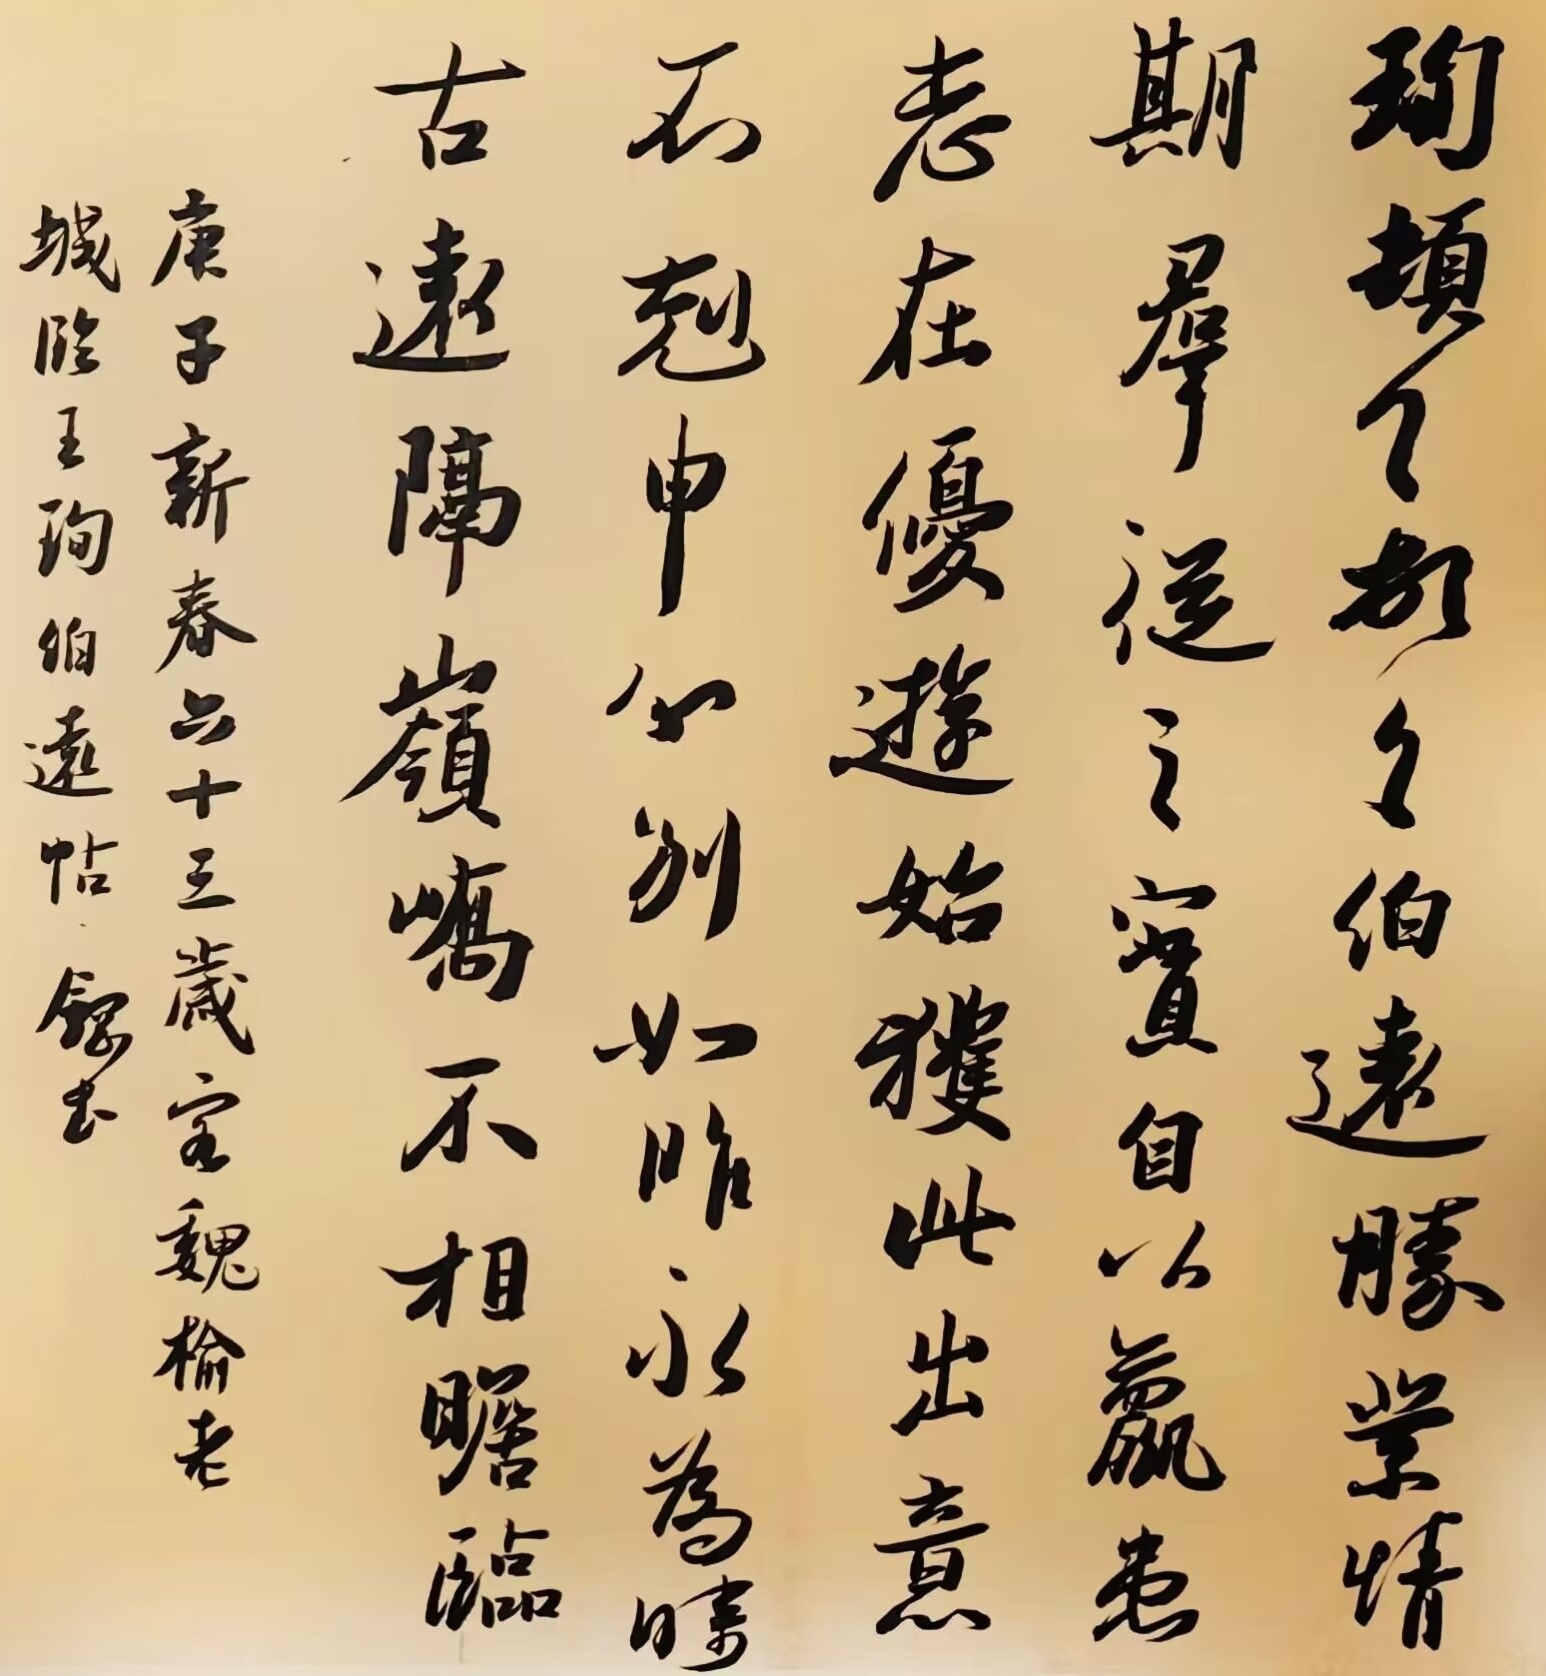 珣頓首頓首伯遠勝業情
期羣從之寶自以羸患
志在優遊始獲此出意
不剋申分別如昨永為疇
古遠隔嶺嶠不相瞻臨
庚子新春六十三歲客魏榆老
城臨王珣伯遠帖書